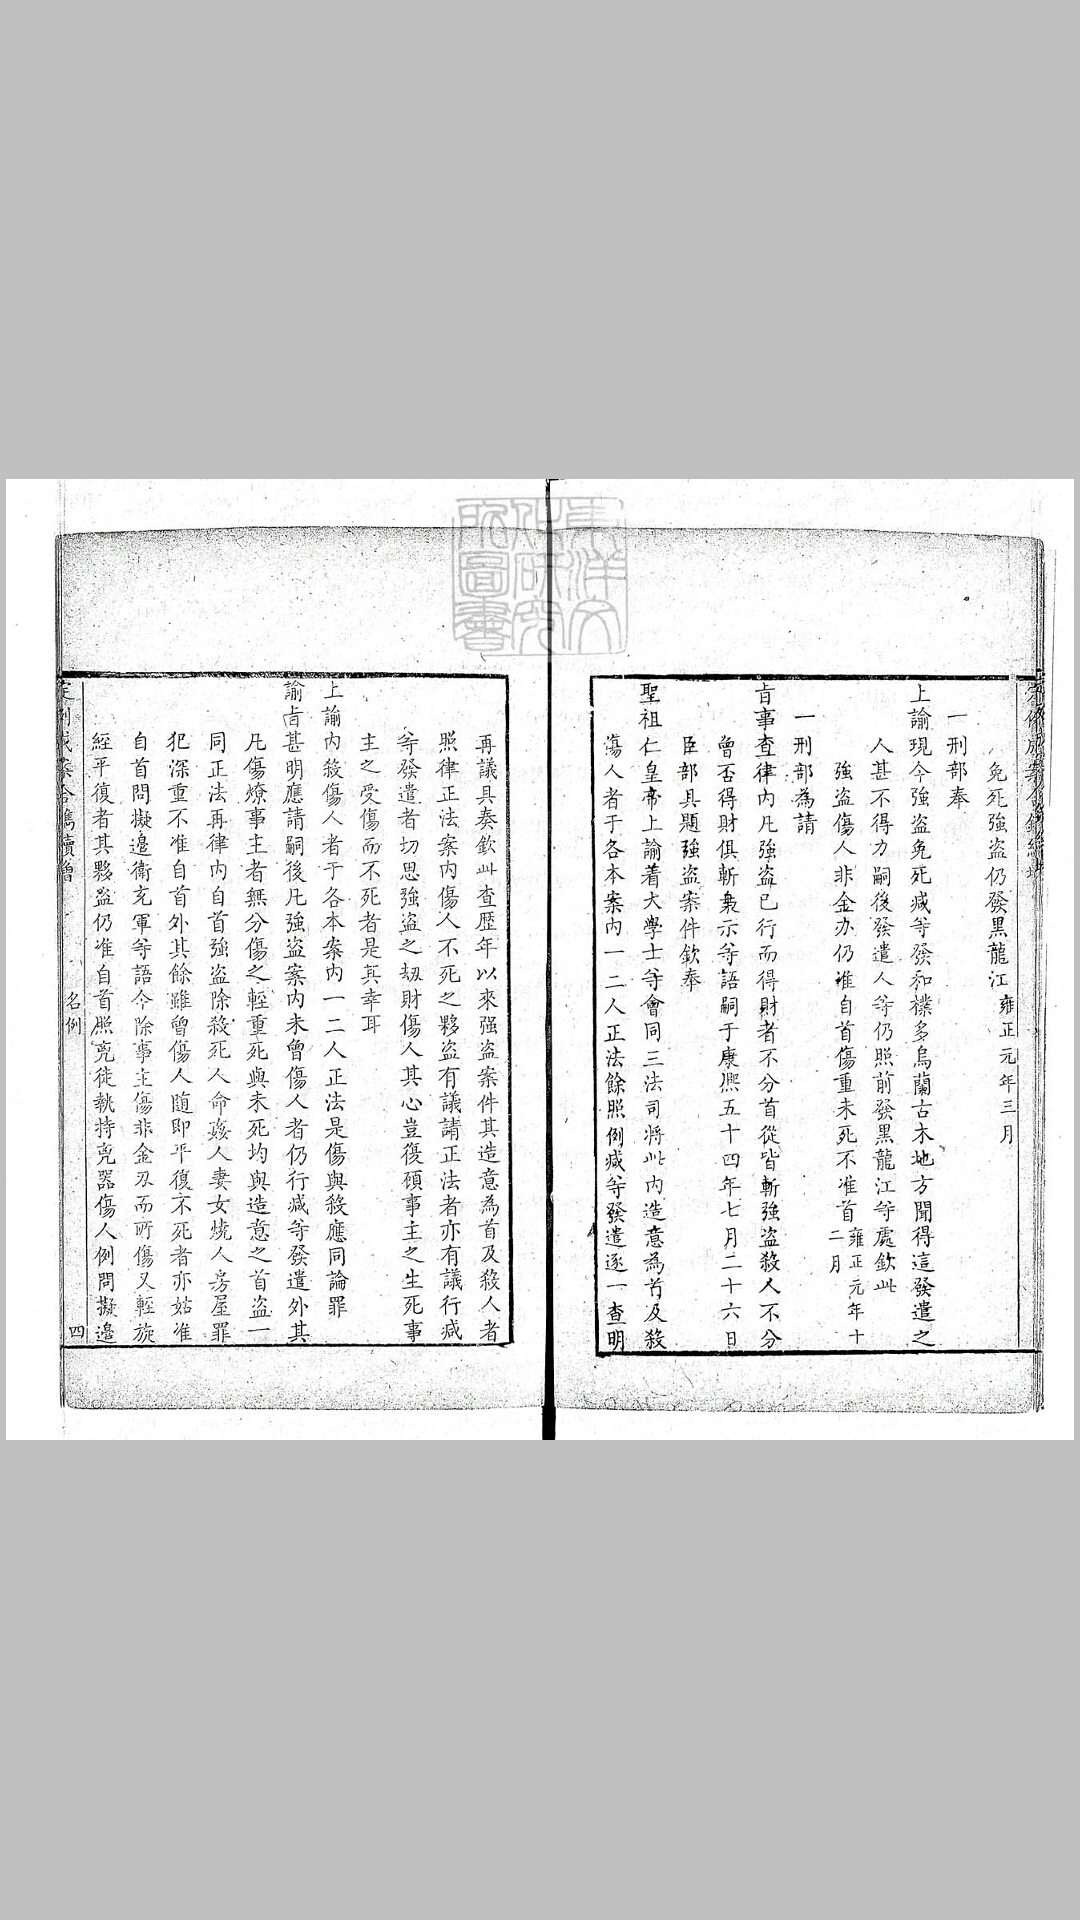 免死強盜仍發黑龍江 雍正元年三月
一刑部奉
上諭現今強盜免死减等發和樸多烏蘭古木地方聞得這發遣之
人甚不得力嗣後發遣人等仍照前發黑龍江等處欽此
強盜傷人非金办仍准自首傷重未死不准首 雍正元年十二月
一刑部為請
旨事查律内凡強盜已行而得財者不分首從皆斬強盜殺人不分
曾否得財俱斬梟示等語嗣于康熈五十四年七月二十六日
臣部具題強盜案件欽奉
聖祖仁皇帝上諭着大學士等會同三法司將此内造意為首及殺
傷人者于各本案内一二人正法餘照例减等發遣逐一查明
再議具奏欽此查歷年以來强盜案件其造意為首及殺人者
照律正法案内傷人不死之夥盜有議請正法者亦有議行减
等發遣者切思強盜之刼財傷人其心豈復顧事主之生死事
主之受傷而不死者是其幸耳
上諭内殺傷人者于各本案内一二人正法是傷與殺應同論罪
諭旨甚明應請嗣後凡強盜案内未曾傷人者仍行减等發遣外其
凡傷燎事主者無分傷之輕重死與未死均與造意之首盜一
同正法再律内自首強盜除殺死人命姦人妻女燒人房屋罪
犯深重不准自首外其餘雖曾傷人随即平復不死者亦姑准
自首問擬邊衛充軍等語今除事主傷非金刃而所傷又輕旋
經平復者其夥盜仍准自首照兇徒執持兇器傷人例問擬邊
名例
四
定例成案合鐫續增